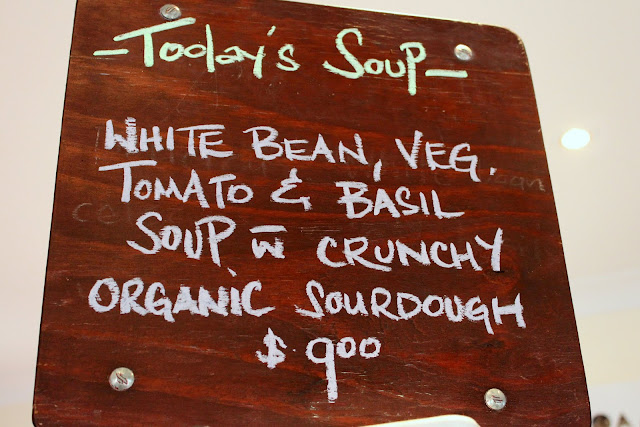 -Today's Soup-
WHITE BEAN, VEG.
TOMATO & BASIL
SOUP w̅ CRUNCHY
ORGANIC SOURDOUGH
$ 900